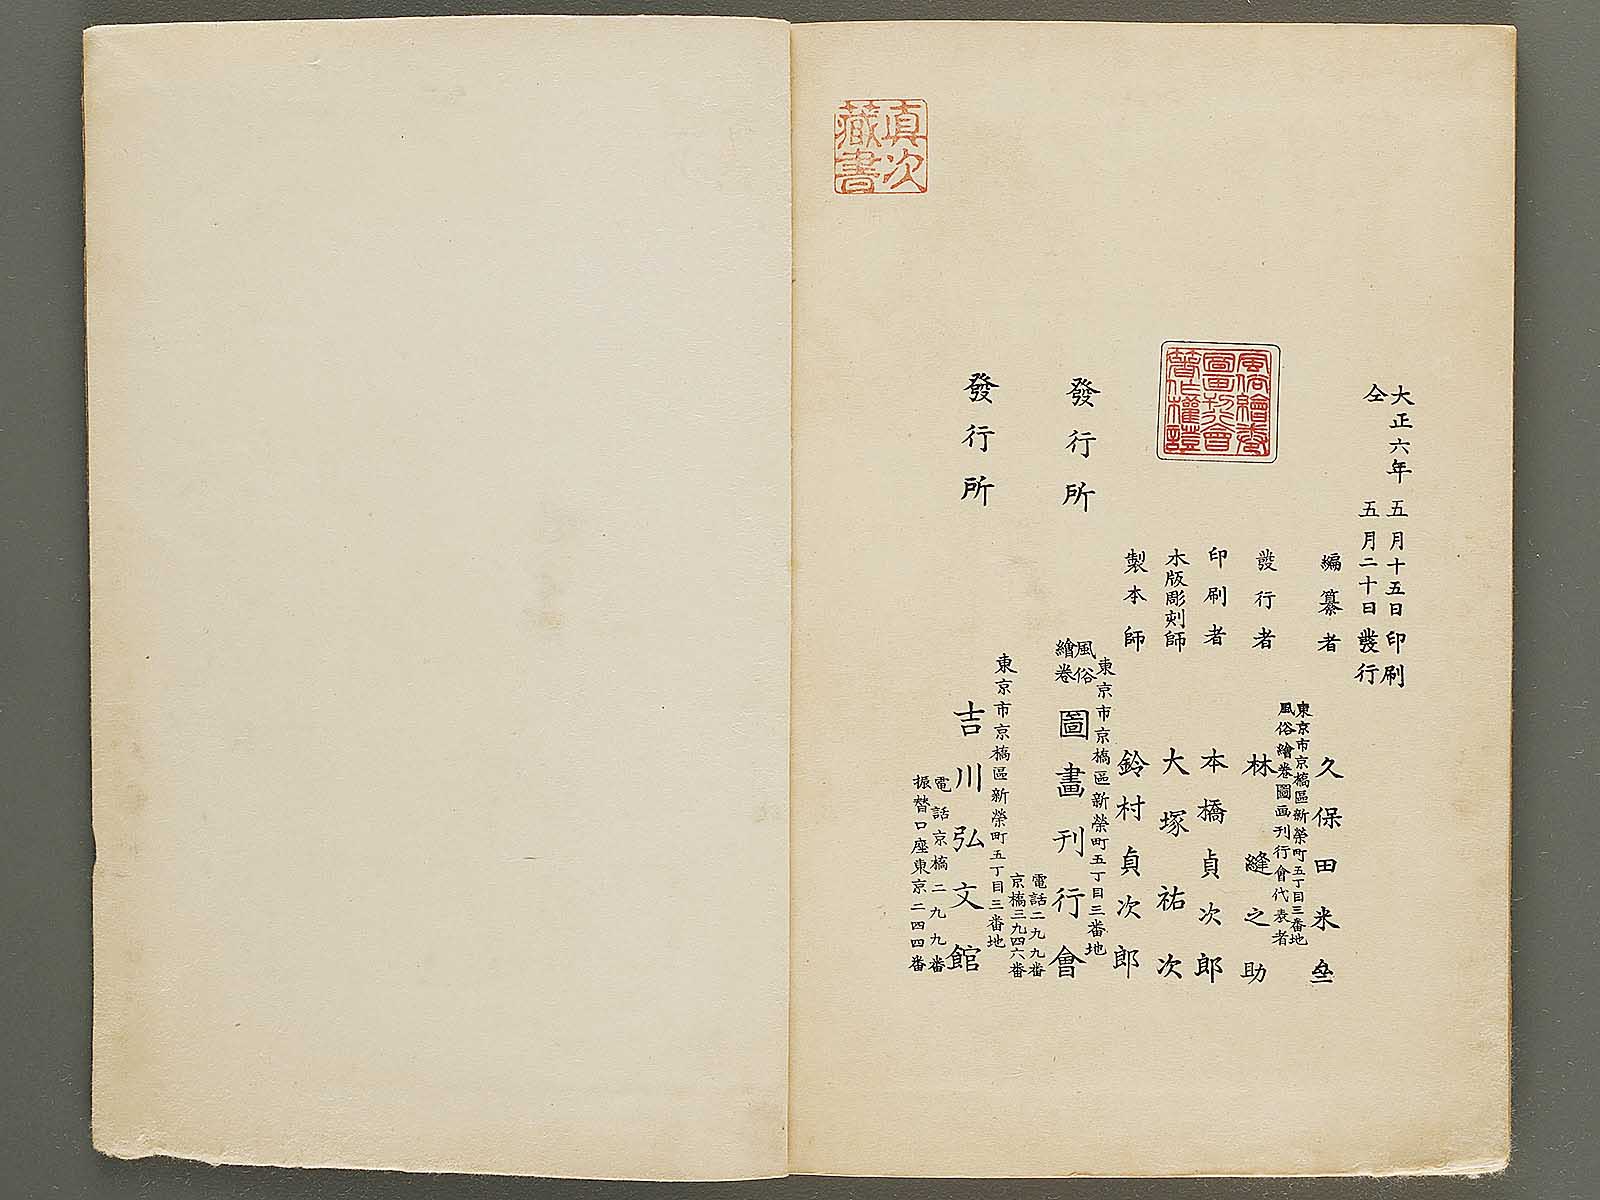 大正六年五月十五日印刷
仝五月二十日發行
編纂者
久保田米斎
東京市京橋區新榮町五丁目三番地
風俗繪巻圖画刊行會代表者
發行者
林縫之助
印刷者
本橋貞次郎
木版彫刻師
大塚祐次
製本師
鈴村貞次郎
風俗繪巻圖畫刊行會著作權證
東京市京橋區新榮町五丁目三番地
發行所
風俗
繪巻
圖畫刊行會
電話二九九番
京橋三九四六番
東京市京橋區新榮町五丁目三番地
發行所
吉川弘文館
電話京橋二九九番
振替口座東京二四四番
真次
藏書